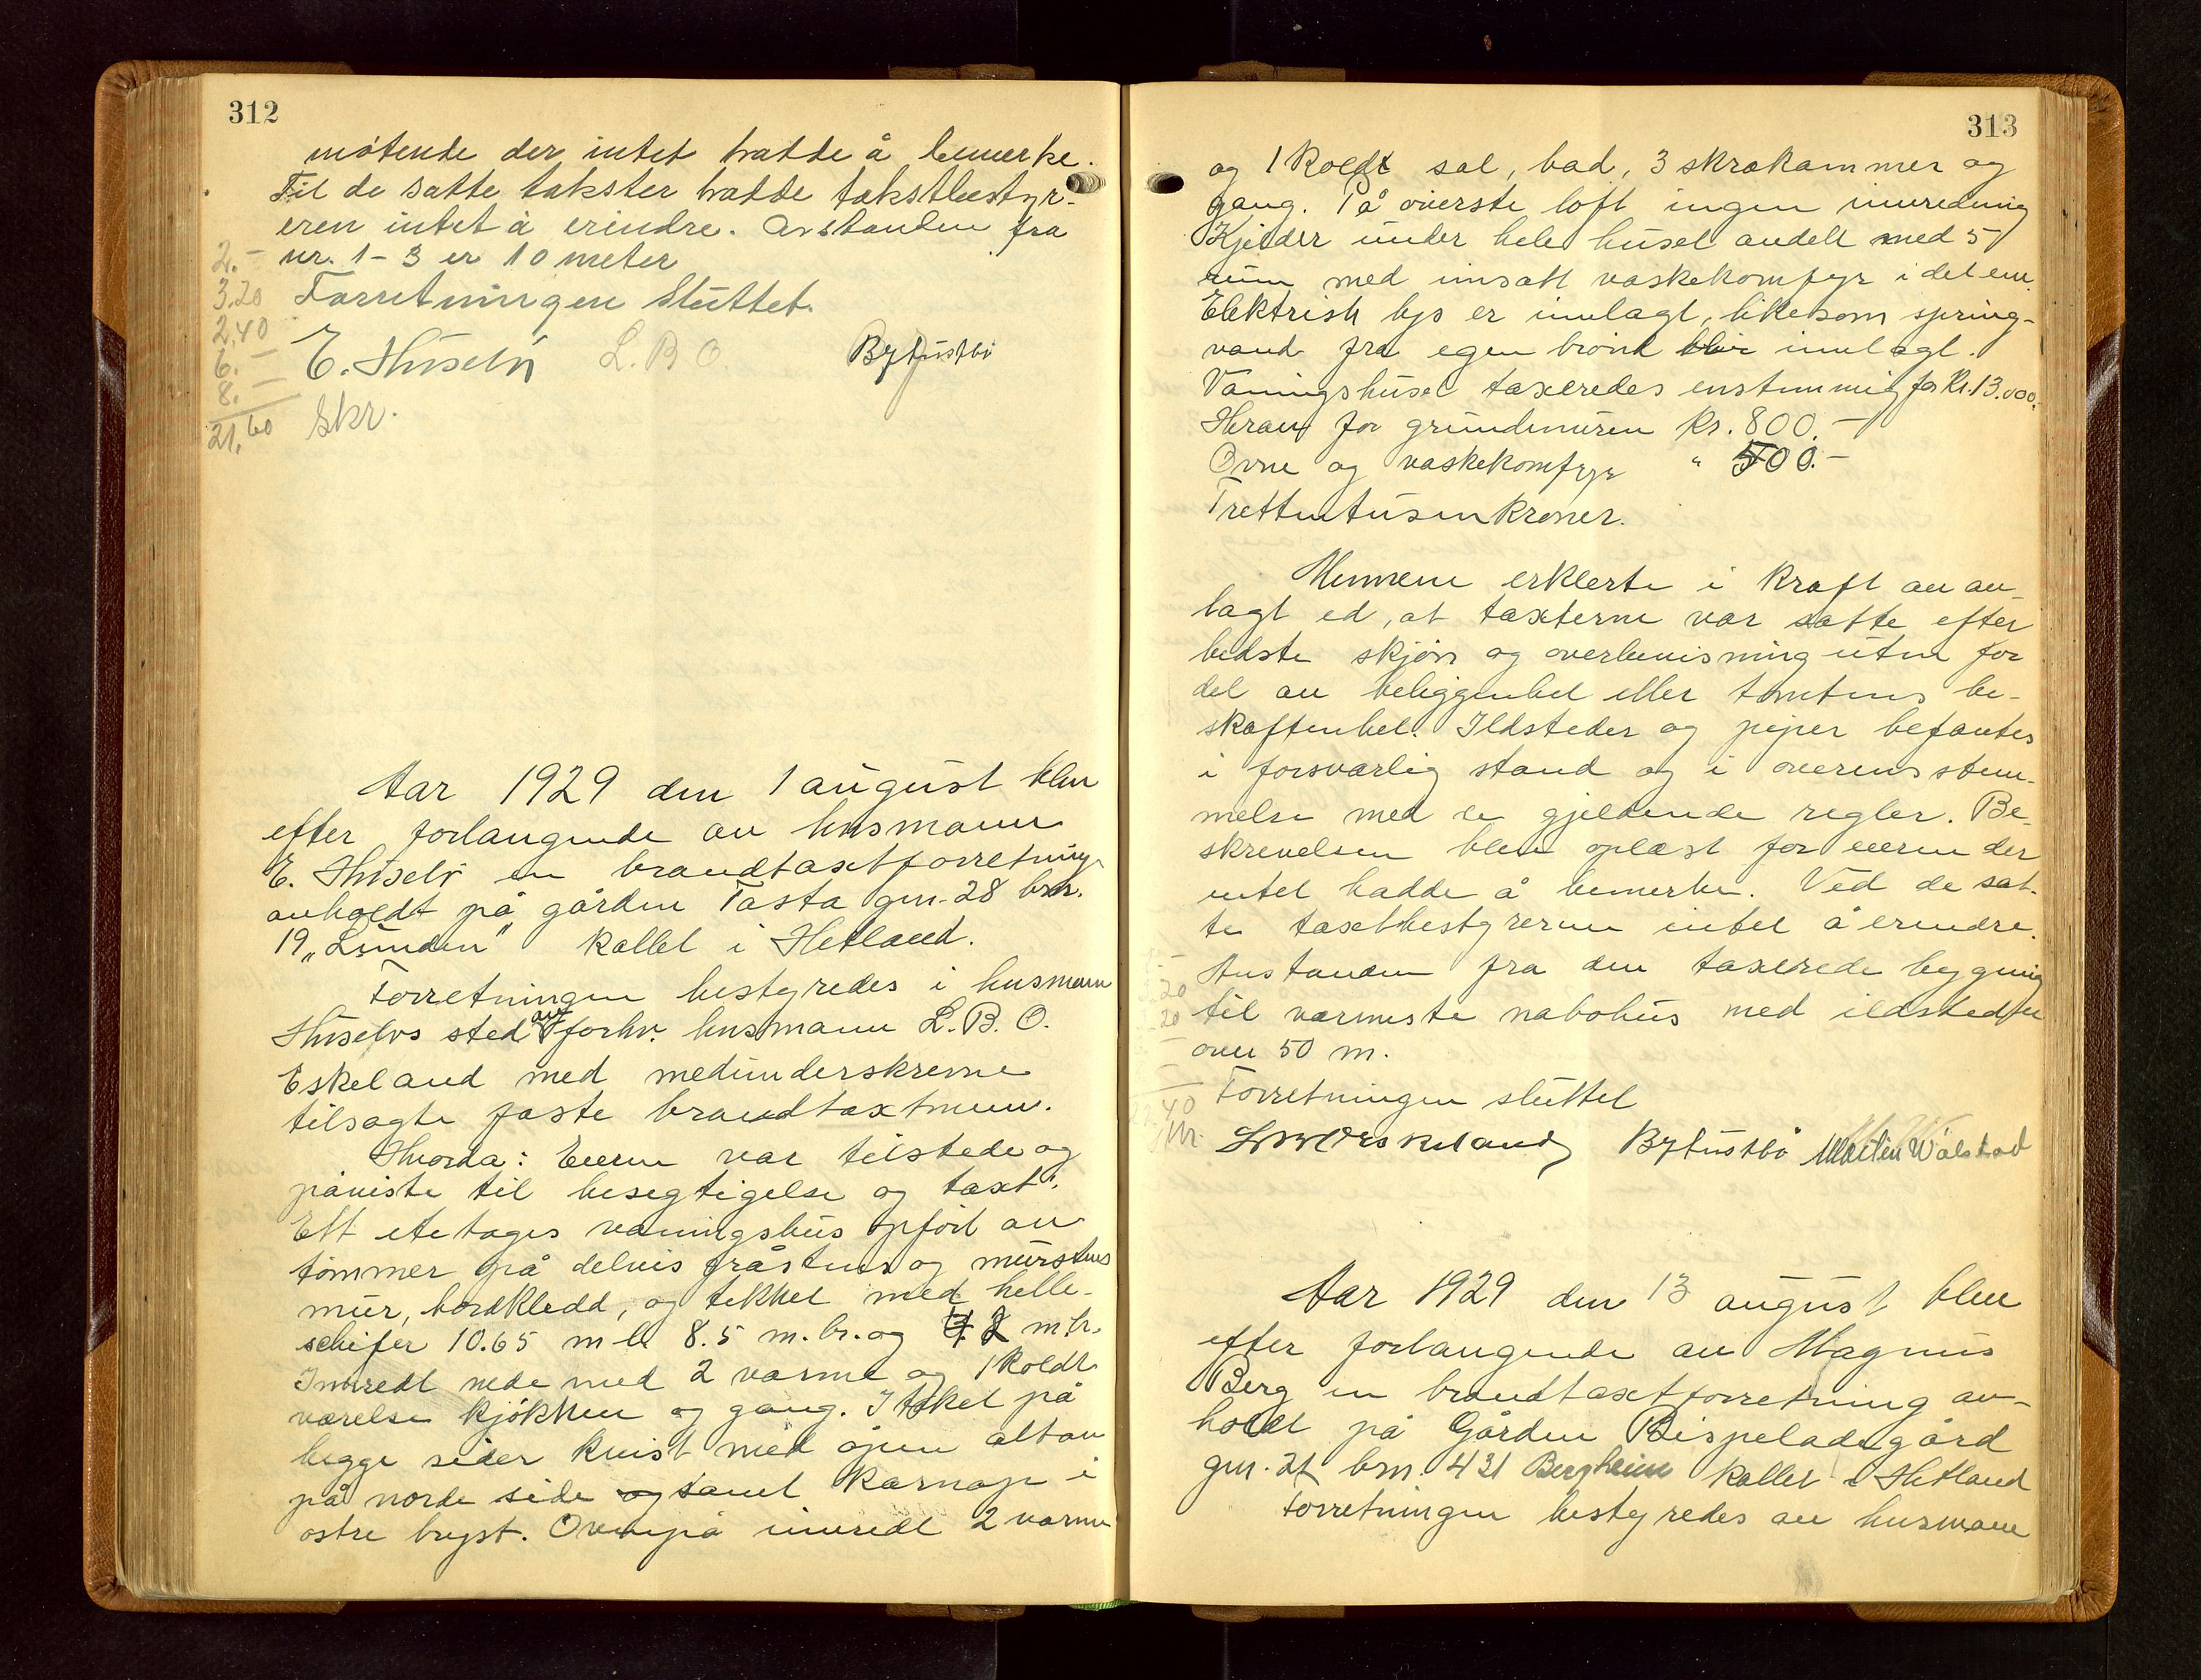 312
møtende der intet hadde å bemerke.
Til de satte takster hadde takstbestyr-
eren intet å erindre. Avstanden fra
nr. 1-3 er 10 meter
Forretningen sluttet.
E. Husebø L. B. O. B Tustbø
Skr.
2.-
3.20
2,40
6.-
8.-
21.60
Aar 1929 den 1 august blev
efter forlangende av lensmann
E. Husebø en brandtaxtforretning
avholdt på gården Tasta gnr. 28 bnr.
19 „Lunden" kallet i Hetland.
Forretningen bestyredes i lensmann
Husebøs sted av forhv. lensmann L. B. O.
Eskeland med medunderskrevne
tilsagte faste brandtaxtmenn.
Hvorda: Eieren var tilstede og
påviste til besegtigelse og taxt:
Ett etetages vaningshus opført av
tømmer på delvis gråstens og murstens
mur, bordkledd, og tekket med helle-
schifer 10.65 m l 8.5 m. br. og 4.2 m.h.
Innredt nede med 2 varme og 1 koldt
værelse kjøkken og gang. I taket på
begge sider kvist med åpen altan
på nordre side og samt karnap i
østre bryst. Ovenpå innredt 2 varme
313
og 1 koldt sal, bad, 3 skråkammer og
gang. På øverste loft ingen innredning
Kjelder under hele huset andelt med 5
rum med innsatt vaskekomfyr i det ene.
Elektrisk lys er innlagt, likesom spring-
vand fra egen brønd blir innlagt.
Vaningshuset taxeredes enstemmig for Kr. 13.000.
Herav for grundmuren Kr. 800.-
Ovne og vaskekomfyr " 500.-
Trettentusen kroner.
Mennene erklerte i kraft av av-
lagt ed, at taxterne var satte efter
bedste skjøn og overbevisning uten for
del av beliggenhet eller tomtens be-
skaffenhet. Ildsteder og piper befantes
i forsvarlig stand og i overensstem-
melse med de gjeldende regler. Be-
skrevelsen blev oplæst for eieren der
intet hadde å bemerke. Ved de sat-
te taxtbestyreren intet å erindre.
Avstanden fra den taxerede bygning
til nærmeste nabohus med ildsted er
over 50 m.
Forretningen sluttet
LBOEskeland B Tustbø Martin Wølstad
Aar 1929 den 13 august blev
efter forlangende av Magnus
Berg en brandtaxtforretning av-
holdt på Gården Bispeladegård
gnr. 21 bnr. 431 Bergheim kallet i Hetland
Forretningen bestyredes av lensmann